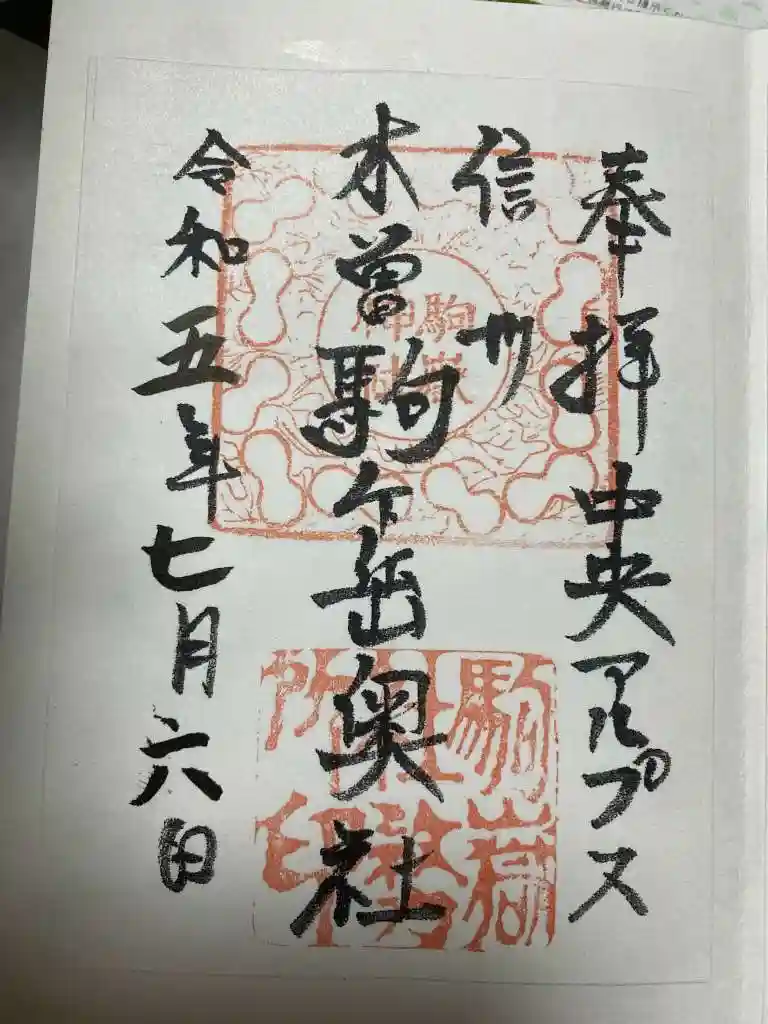 奉拝中央アルプス
信州
木曽駒ケ岳奥社
令和五年七月六日
駒嶽
神社
駒嶽
社務
所印